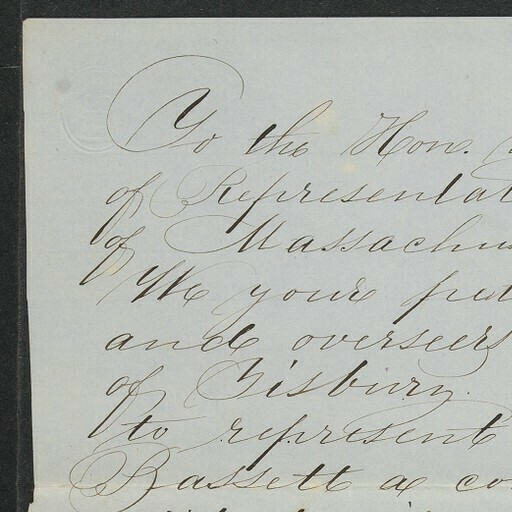 To the Hon.
of Representat
of Massachu
We your pet
and overseers
of Tisbury.
to represent
Bassett a co